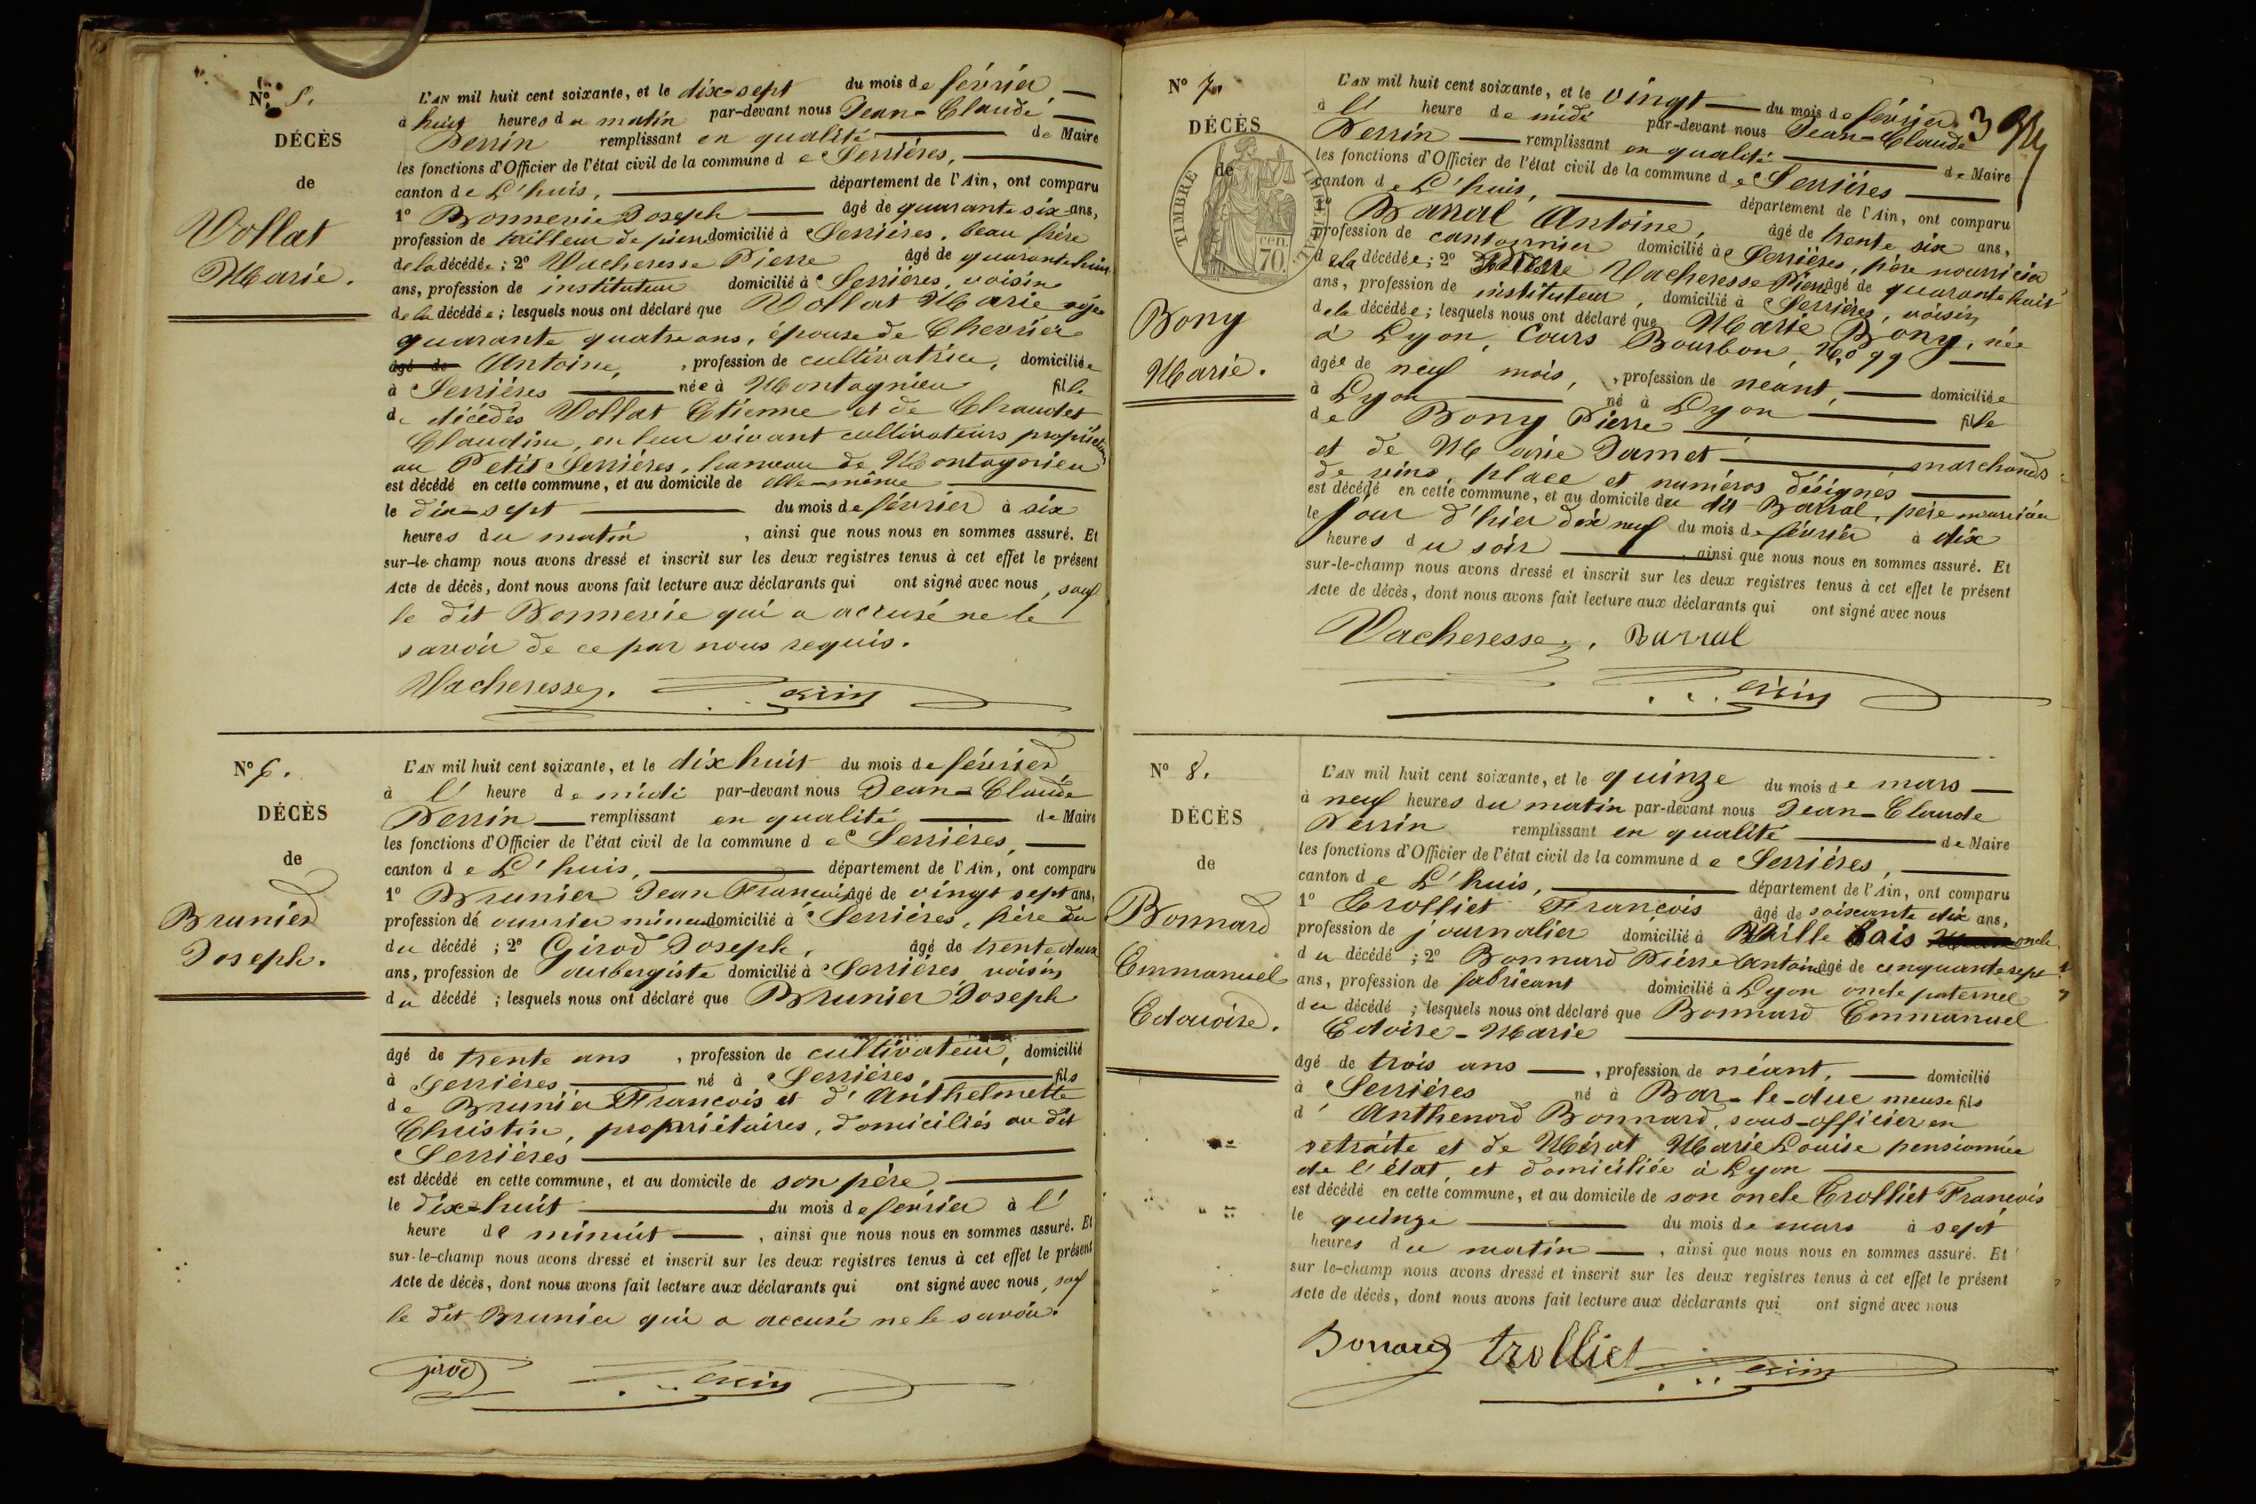 N° 5.
DÉCÈS
de
Vollat
Marie.
L'AN mil huit cent soixante, et le dix-sept du mois de février
à huit heures du matin par-devant nous Jean-Claude
Perrin remplissant en qualité de Maire
les fonctions d'Officier de l'état civil de la commune de Serrières,
canton de L'huis, département de l'Ain, ont comparu
1° Bonnevie Joseph âgé de quarante six ans,
profession de tailleur de pierre domicilié à Serrières, beau frère
de la décédée; 2° Vacheresse Pierre âgé de quarante huit
ans, profession de instituteur domicilié à Serrières, voisin
de la décédée; lesquels nous ont déclaré que Vollat Marie âgée
quarante quatre ans, épouse de Chevrier
âgé de Antoine, profession de cultivatrice, domiciliée
à Serrières née à Montagnieu fille
de décédés Vollat Etienne et de Chaudet
Claudine, en leur vivant cultivateurs propriétaires
au Petit Serrières, hameau de Montagnieu
est décédé en cette commune, et au domicile de elle-même
le dix-sept du mois de février à six
heures du matin, ainsi que nous nous en sommes assuré. Et
sur-le-champ nous avons dressé et inscrit sur les deux registres tenus à cet effet le présent
Acte de décès, dont nous avons fait lecture aux déclarants qui ont signé avec nous, sauf
le dit Bonnevie qui a accusé ne le
savoir de ce par nous requis.
Vacheresse. Perrin
N° 6.
DÉCÈS
de
Brunier
Joseph.
L'AN mil huit cent soixante, et le dix huit du mois de février
à l' heure de midi par-devant nous Jean-Claude
Perrin remplissant en qualité de Maire
les fonctions d'Officier de l'état civil de la commune de Serrières,
canton de L'huis, département de l'Ain, ont comparu
1° Brunier Jean François âgé de vingt sept ans,
profession de ouvrier mineur domicilié à Serrières, frère du
du décédé; 2° Girod Joseph, âgé de trente deux
ans, profession de aubergiste domicilié à Serrières, voisin
du décédé; lesquels nous ont déclaré que Brunier Joseph
âgé de trente ans, profession de cultivateur, domicilié
à Serrières né à Serrières, fils
de Brunier François et d'Anthelmette
Christin, propriétaires, domiciliés au dit
Serrières
est décédé en cette commune, et au domicile de son père
le dix-huit du mois de février à l'
heure de minuit, ainsi que nous nous en sommes assuré. Et
sur-le-champ nous avons dressé et inscrit sur les deux registres tenus à cet effet le présent
Acte de décès, dont nous avons fait lecture aux déclarants qui ont signé avec nous, sauf
le dit Brunier qui a accusé ne le savoir.
girod Perrin
N° 7.
DÉCÈS
de
Bony
Marie.
TIMBRE IMPÉRIAL
CEN. 70.
L'AN mil huit cent soixante, et le vingt du mois de février
à l' heure de midi par-devant nous Jean-Claude
Perrin remplissant en qualité de Maire
les fonctions d'Officier de l'état civil de la commune de Serrières
canton de L'huis, département de l'Ain, ont comparu
1° Barral Antoine, âgé de trente six ans,
profession de cantonnier domicilié à Serrières, père nourricier
de la décédée; 2° Vacheresse Pierre âgé de quarante huit
ans, profession de instituteur, domicilié à Serrières, voisin
de la décédée; lesquels nous ont déclaré que Marie Bony, née
à Lyon, Cours Bourbon, N° 99
âgée de neuf mois, profession de néant, domiciliée
à Lyon né à Lyon fille
de Bony Pierre
et de Marie Jamet marchands
de vins, place et numéros désignés
est décédé en cette commune, et au domicile du dit Barral, père nourricier
le jour d'hier dix neuf du mois de février à dix
heures du soir, ainsi que nous nous en sommes assuré. Et
sur-le-champ nous avons dressé et inscrit sur les deux registres tenus à cet effet le présent
Acte de décès, dont nous avons fait lecture aux déclarants qui ont signé avec nous
Vacheresse, Barral
Perrin
N° 8.
DÉCÈS
de
Bonnard
Emmanuel
Edouoire.
L'AN mil huit cent soixante, et le quinze du mois de mars
à neuf heures du matin par-devant nous Jean-Claude
Perrin remplissant en qualité de Maire
les fonctions d'Officier de l'état civil de la commune de Serrières,
canton de L'huis, département de l'Ain, ont comparu
1° Trolliet François âgé de soixante dix ans,
profession de journalier domicilié à Bois oncle
du décédé; 2° Bonnard Pierre Antoine âgé de cinquante sept
ans, profession de fabricant domicilié à Lyon oncle paternel
du décédé; lesquels nous ont déclaré que Bonnard Emmanuel
Edoire-Marie
âgé de trois ans, profession de néant, domicilié
à Serrières né à Bar-le-duc meuse fils
d' Anthenord Bonnard, sous-officier en
retraite et de Mérat Marie Louise pensionnée
de l'état, et domiciliée à Lyon
est décédé en cette commune, et au domicile de son oncle Trolliet François
le quinze du mois de mars à sept
heures du matin, ainsi que nous nous en sommes assuré. Et
sur le-champ nous avons dressé et inscrit sur les deux registres tenus à cet effet le présent
Acte de décès, dont nous avons fait lecture aux déclarants qui ont signé avec nous
Bonnard trolliet Perrin